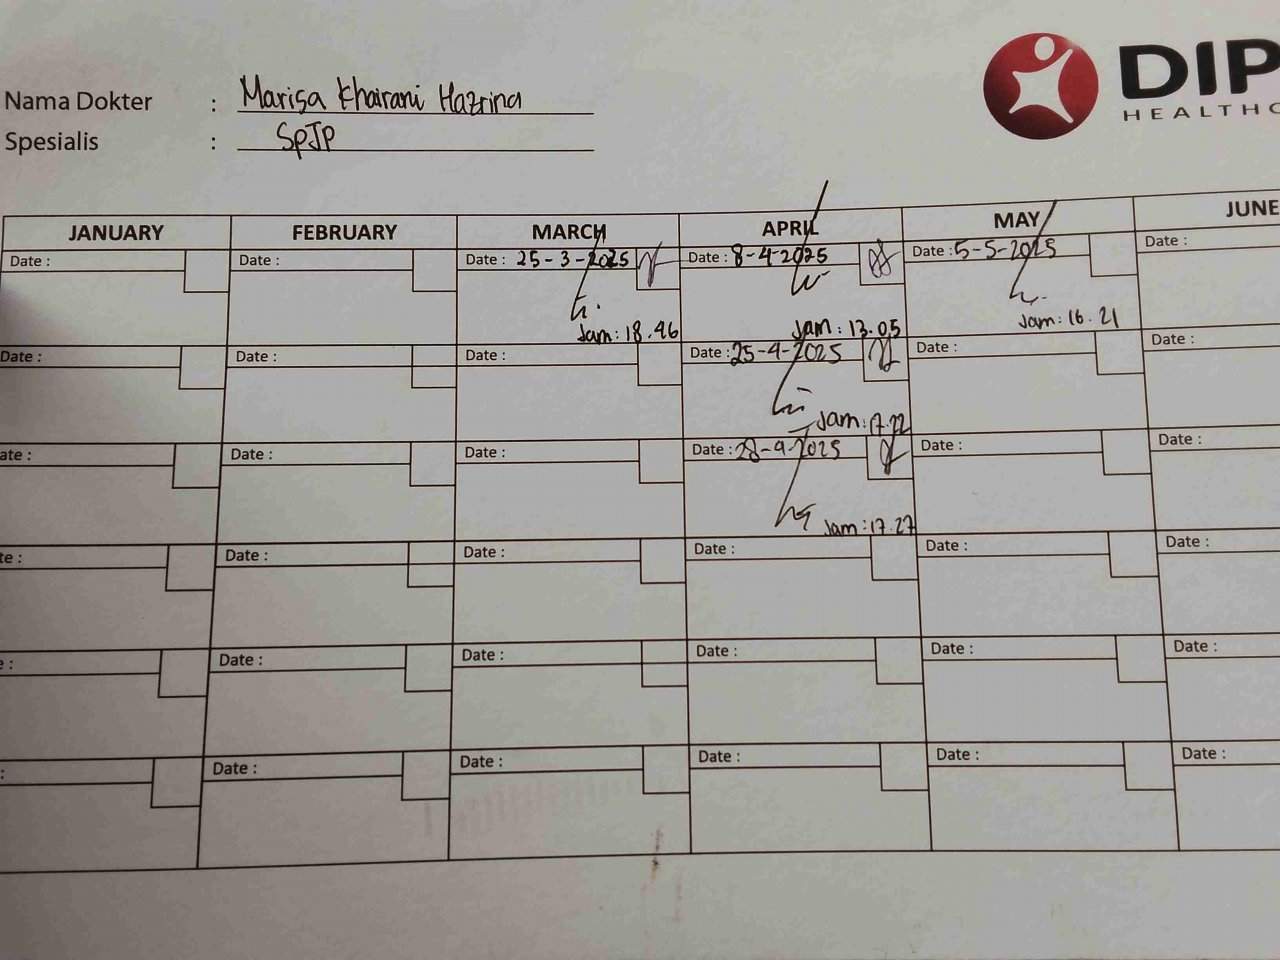 Nama Dokter : Marisa Khairani Hazrina
Spesialis : SpJP
DIP
HEALTHC
JANUARY FEBRUARY MARCH APRIL MAY JUNE
Date : Date : Date : 25-3-2025 Date : 8-4-2025 Date : 5-5-2025 Date :
Jam: 18.46 Jam: 13.05 Jam: 16.21
Date : Date : Date : Date : 25-4-2025 Date : Date :
Jam: 17.22
ate : Date : Date : Date : 28-4-2025 Date : Date :
Jam: 17.27
te : Date : Date : Date : Date : Date :
e : Date : Date : Date : Date : Date :
: Date : Date : Date : Date : Date :